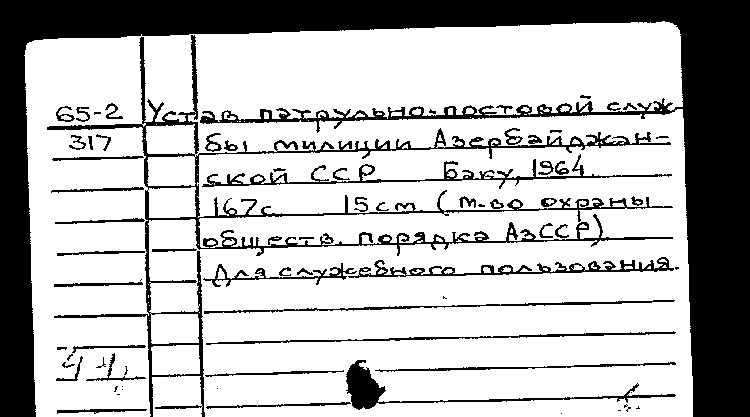 65-2 Устав патрульно-постовой служ-
317 бы милиции Азербайджан-
ской ССР Баку, 1964
167с. 15см (М-во охраны
обществ. порядка АзССР)
Для служебного пользования.